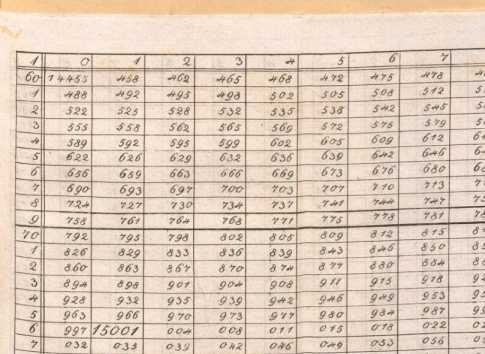 1 0 1 2 3 4 5 6 7
60 14455 458 462 465 468 472 475 478
1 488 492 495 498 502 505 508 512
2 522 525 528 532 535 538 542 545
3 555 558 562 565 569 572 575 579
4 589 592 595 599 602 605 609 612
5 622 626 629 632 636 639 642 646
6 656 659 663 666 669 673 676 680
7 690 693 697 700 703 707 710 713
8 724 727 730 734 737 741 744 747
9 758 761 764 768 771 775 778 781
70 792 795 798 802 805 809 812 815
1 826 829 833 836 839 843 846 850
2 860 863 867 870 874 877 880 884
3 894 898 901 904 908 911 915 918
4 928 932 935 939 942 946 949 953
5 963 966 970 973 977 980 984 987
6 997 15001 004 008 011 015 018 022
7 032 035 039 042 046 049 053 056